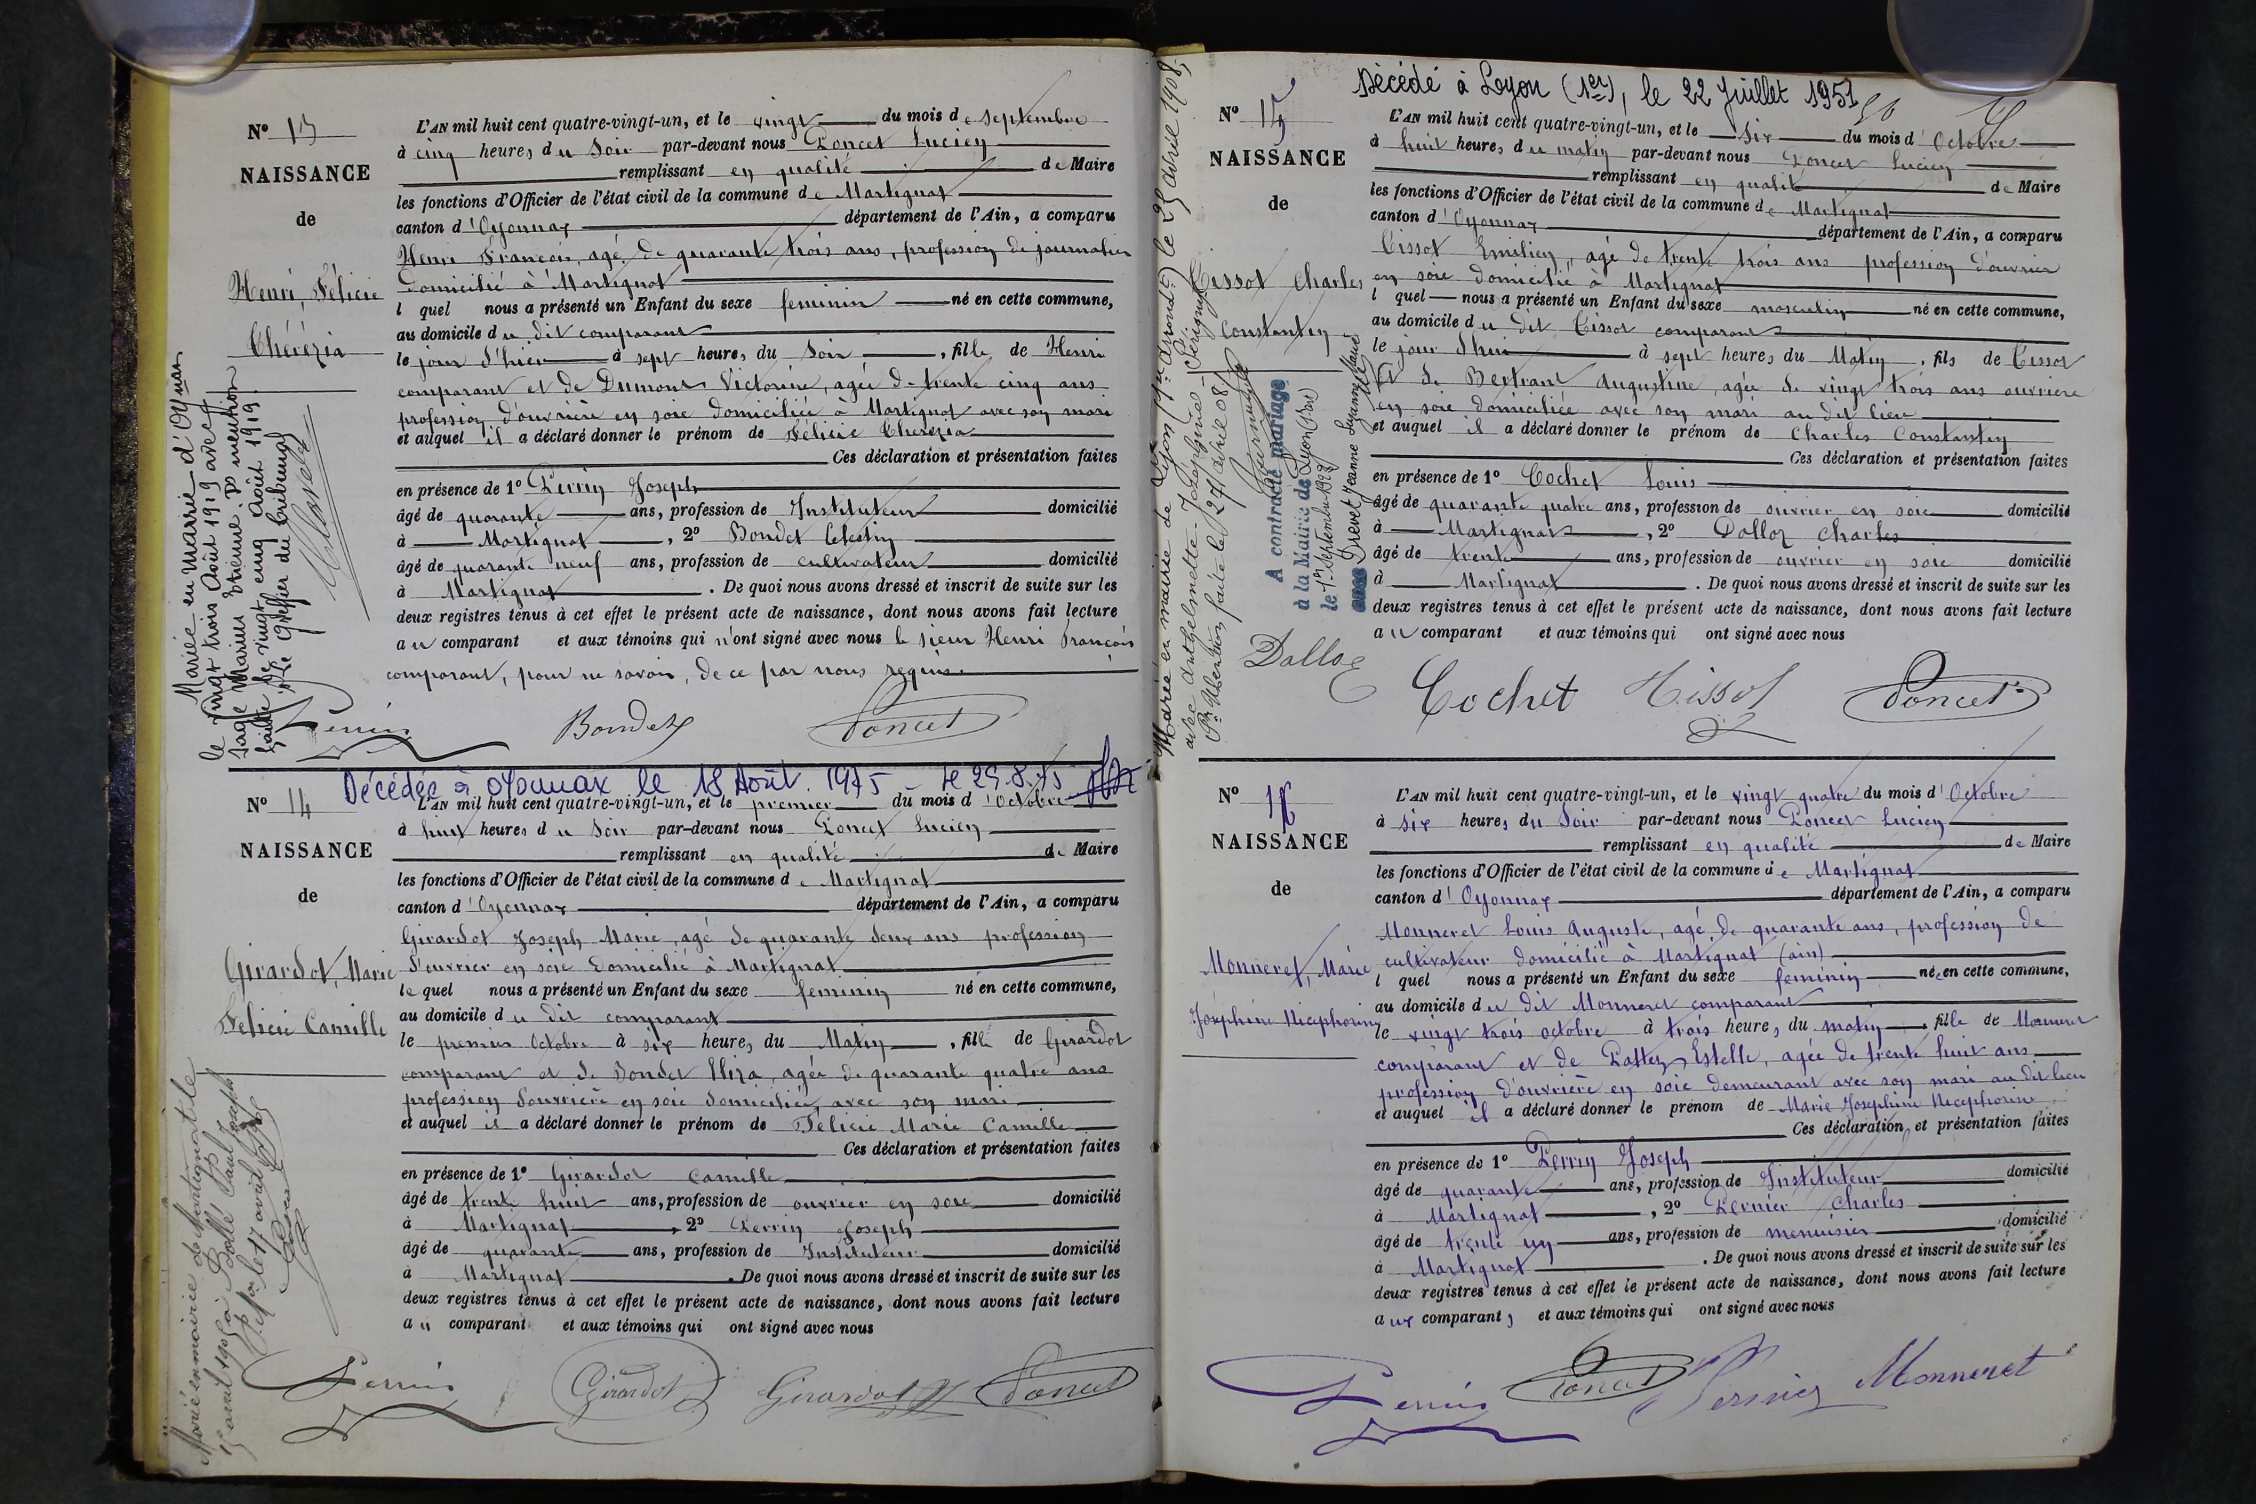 Nº 13
NAISSANCE
de
Henri, Félicie
Thérézia
L'AN mil huit cent quatre-vingt-un, et le vingt du mois de septembre
à cinq heures du Soir par-devant nous Poncet Lucien
remplissant en qualité de Maire
les fonctions d'Officier de l'état civil de la commune de Martignat
canton d'Oyonnax département de l'Ain, a comparu
Henri François, agé de quarante trois ans, profession de journalier
domicilié à Martignat
l quel nous a présenté un Enfant du sexe feminin né en cette commune,
au domicile du dit comparant
le jour d'hier à sept heures du Soir, fille de Henri
comparant et de Dumont Victorine, agée de trente cinq ans
profession d'ouvrière en soie domiciliée à Martignat avec son mari
et auquel il a déclaré donner le prénom de Félicie Thérézia
Ces déclaration et présentation faites
en présence de 1º Perrin Joseph
âgé de quarante ans, profession de Instituteur domicilié
à Martignat, 2º Bondet Celestin
âgé de quarante neuf ans, profession de cultivateur domicilié
à Martignat. De quoi nous avons dressé et inscrit de suite sur les
deux registres tenus à cet effet le présent acte de naissance, dont nous avons fait lecture
au comparant et aux témoins qui n'ont signé avec nous le sieur Henri François
comparant, pour ne savoir, de ce par nous requis.
Perrin Bondet Poncet
Mariée en mairie d'Oyonnax
le vingt trois Août 1919 avec
Sage Marius Etienne. Pr mention
faite le vingt cinq Août 1919
Le Greffier du tribunal
Nº 14
NAISSANCE
de
Girardot, Marie
Felicie Camille
Décédée à Oyonnax le 18 Août 1975 - le 25.8.75
L'AN mil huit cent quatre-vingt-un, et le premier du mois d'Octobre
à huit heures du Soir par-devant nous Poncet Lucien
remplissant en qualité de Maire
les fonctions d'Officier de l'état civil de la commune de Martignat
canton d'Oyonnax département de l'Ain, a comparu
Girardot Joseph Marie, agé de quarante deux ans profession
d'ouvrier en soie domicilié à Martignat
le quel nous a présenté un Enfant du sexe feminin né en cette commune,
au domicile du dit comparant
le premier Octobre à six heures du Matin, fille de Girardot
comparant et de Bondet Eliza, agée de quarante quatre ans
profession d'ouvrière en soie domiciliée, avec son mari
et auquel il a déclaré donner le prénom de Felicie Marie Camille
Ces déclaration et présentation faites
en présence de 1º Girardot Camille
âgé de trente huit ans, profession de ouvrier en soie domicilié
à Martignat, 2º Perrin Joseph
âgé de quarante ans, profession de Instituteur domicilié
à Martignat. De quoi nous avons dressé et inscrit de suite sur les
deux registres tenus à cet effet le présent acte de naissance, dont nous avons fait lecture
au comparant et aux témoins qui ont signé avec nous
Perrin Girardot Girardot Poncet
le 17 avril
Décédé à Lyon (1er), le 22 Juillet 1951
Nº 15
NAISSANCE
de
Tissot Charles
Constantin
L'AN mil huit cent quatre-vingt-un, et le six du mois d'Octobre
à huit heures du matin par-devant nous Poncet Lucien
remplissant en qualité de Maire
les fonctions d'Officier de l'état civil de la commune de Martignat
canton d'Oyonnax département de l'Ain, a comparu
Tissot Emilien, agé de trente trois ans profession d'ouvrier
en soie domicilié à Martignat
l quel nous a présenté un Enfant du sexe masculin né en cette commune,
au domicile du dit Tissot comparant
le jour d'hui à sept heures du Matin, fils de Tissot
et de Bertrant Augustine agée de vingt trois ans ouvriere
en soie domiciliée avec son mari au dit lieu
et auquel il a déclaré donner le prénom de Charles Constantin
Ces déclaration et présentation faites
en présence de 1º Cochet Louis
âgé de quarante quatre ans, profession de ouvrier en soie domicilié
à Martignat, 2º Dalloz Charles
âgé de trente ans, profession de ouvrier en soie domicilié
à Martignat. De quoi nous avons dressé et inscrit de suite sur les
deux registres tenus à cet effet le présent acte de naissance, dont nous avons fait lecture
au comparant et aux témoins qui ont signé avec nous
Dalloz Cochet Tissot Poncet
Marié en mairie de Lyon (1er arrondt) le 25 avril 1908,
Pr Mention faite le 27 avril 08
A contracté mariage
à la Mairie de Lyon
le 1er Septembre 1923
avec Drevet Jeanne Suzanne
Nº 16
NAISSANCE
de
Monneret, Marie
Joséphine Nicephorine
L'AN mil huit cent quatre-vingt-un, et le vingt quatre du mois d'Octobre
à six heures du Soir par-devant nous Poncet Lucien
remplissant en qualité de Maire
les fonctions d'Officier de l'état civil de la commune de Martignat
canton d'Oyonnax département de l'Ain, a comparu
Monneret Louis Auguste, agé de quarante ans, profession de
cultivateur domicilié à Martignat (ain)
l quel nous a présenté un Enfant du sexe féminin née en cette commune,
au domicile du dit Monneret comparant
le vingt trois octobre à trois heures du matin, fille de Monneret
comparant et de Estelle, agée de trente huit ans
profession d'ouvrière en soie demeurant avec son mari au dit lieu
et auquel il a déclaré donner le prénom de Marie Josephine Nicephorine
Ces déclaration et présentation faites
en présence de 1º Perrin Joseph
âgé de quarante ans, profession de Instituteur domicilié
à Martignat, 2º Pernier Charles
âgé de trente un ans, profession de menuisier domicilié
à Martignat. De quoi nous avons dressé et inscrit de suite sur les
deux registres tenus à cet effet le présent acte de naissance, dont nous avons fait lecture
aux comparant, et aux témoins qui ont signé avec nous
Perrin Poncet Pernier Monneret